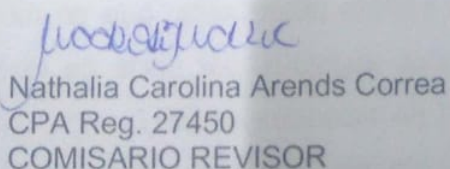 Nathalia Carolina Arends Correa
CPA Reg. 27450
COMISARIO REVISOR